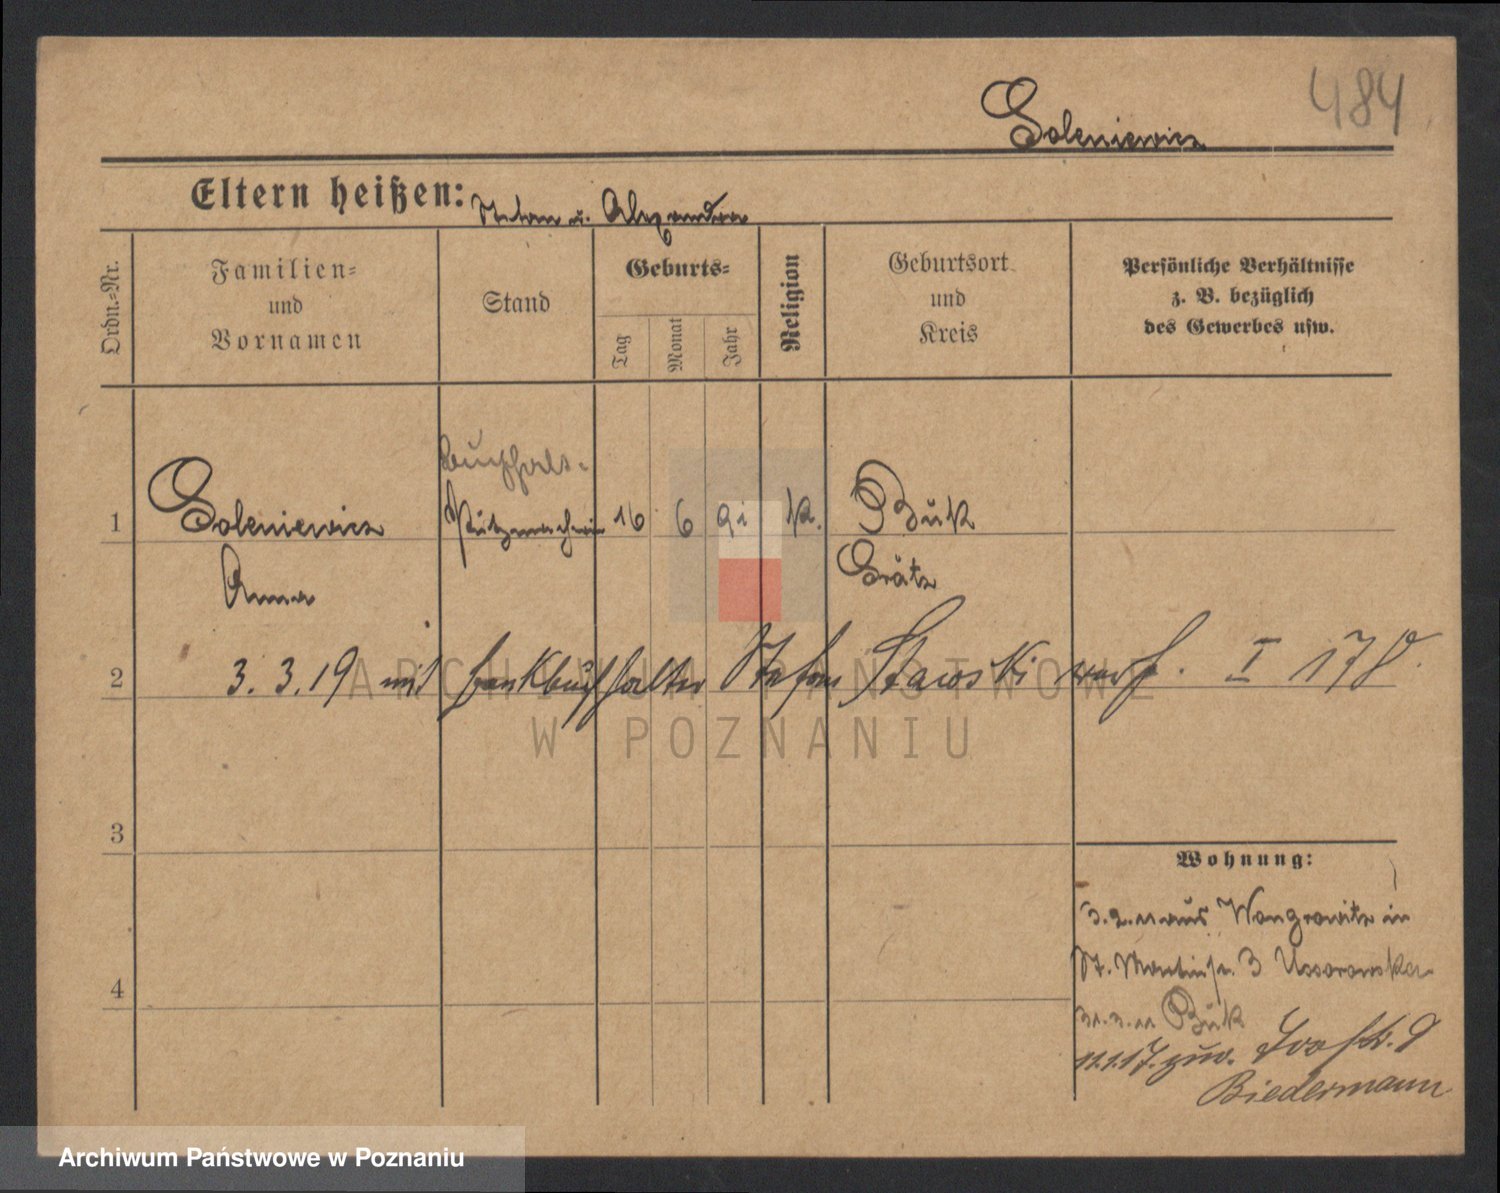 484
Soleniewicz
Eltern heißen: Stefan u. Alexandra
Ordn.-Nr.
Familien-
und
Vornamen
Stand
Geburts-
Tag
Monat
Jahr
Religion
Geburtsort
und
Kreis
Persönliche Verhältnisse
z. B. bezüglich
des Gewerbes usw.
Buchhalt-
1 Soleniewicz Putzmacherin 16 6 91 k. Buk
Anna Grätz
2 3. 3. 19 mit Bankbuchhalter Stefan Stawski verh. I 178.
3
4
Wohnung:
3.2.11 aus Wongrowitz in
St. Martinstr. 3
31.3.11 Buk
11.1.17. zur.
Biedermann
ARCHIWUM PAŃSTWOWE
W POZNANIU
Archiwum Państwowe w Poznaniu